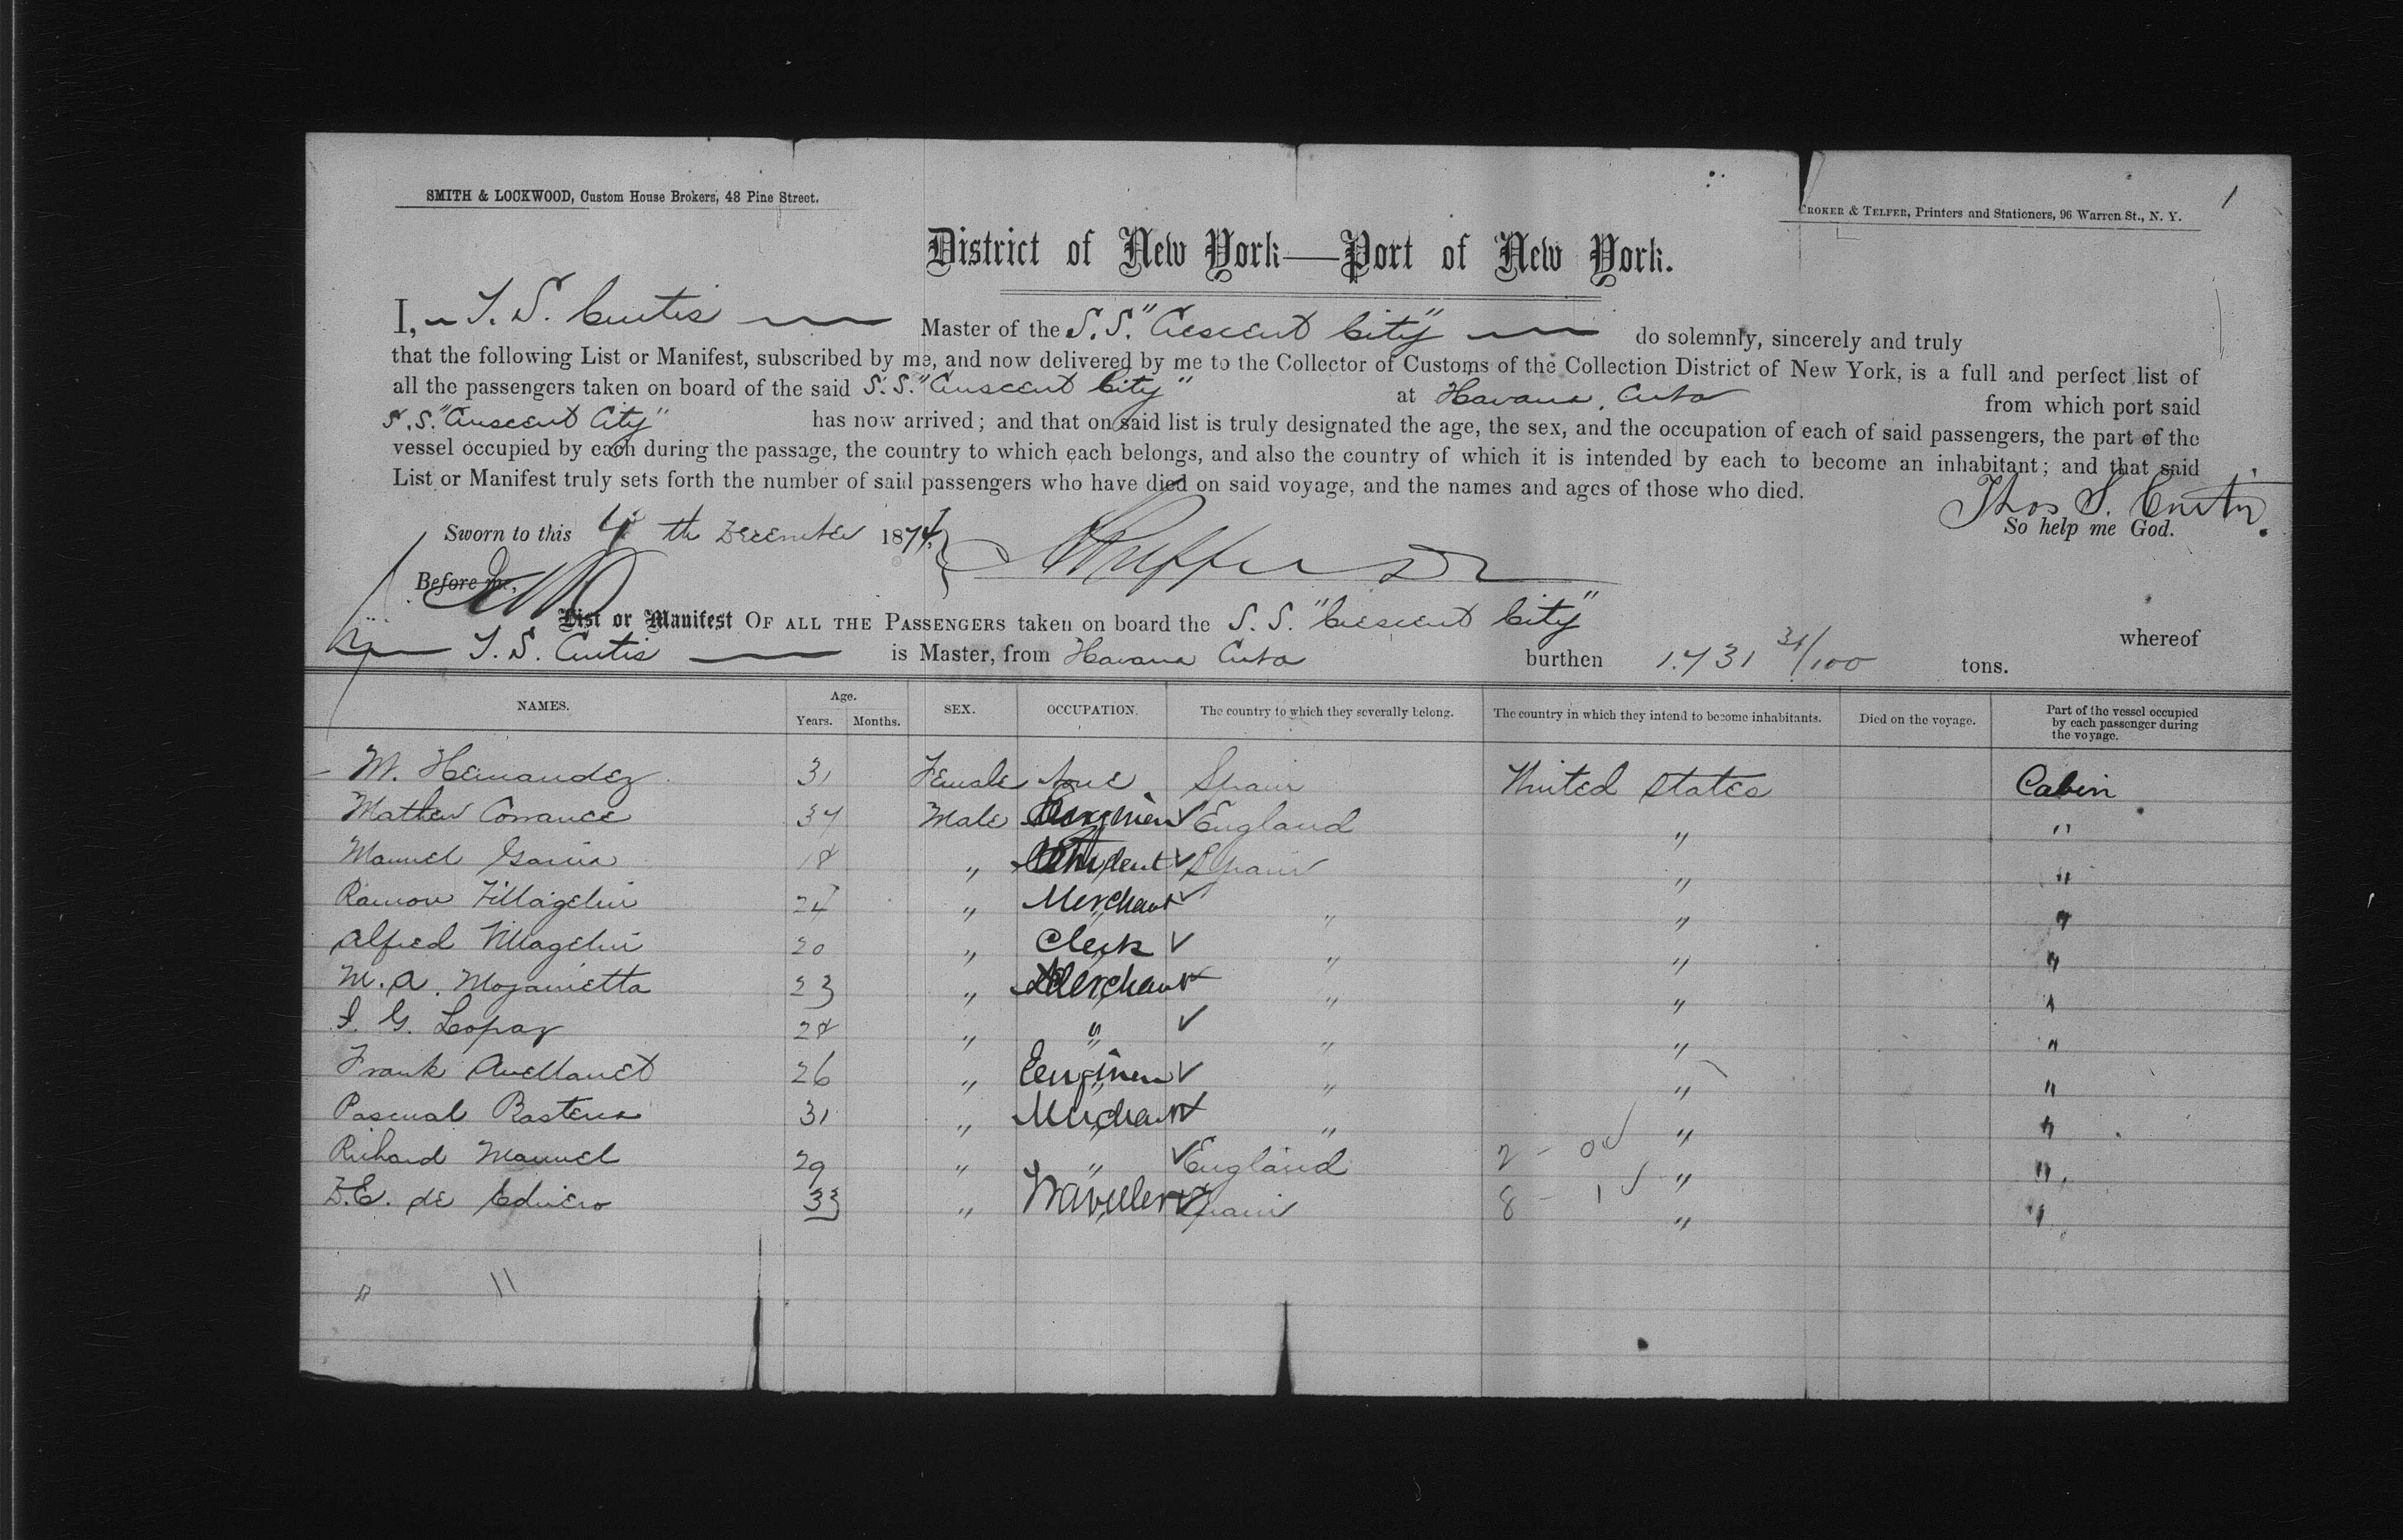 SMITH & LOCKWOOD, Custom House Brokers, 48 Pine Street.
CROKER & TELFER, Printers and Stationers, 96 Warren St., N. Y.
1
District of New York—Port of New York.
I, T. S. Curtis Master of the S.S. "Crescent City" do solemnly, sincerely and truly
that the following List or Manifest, subscribed by me, and now delivered by me to the Collector of Customs of the Collection District of New York, is a full and perfect list of
all the passengers taken on board of the said S.S. "Crescent City" at Havana, Cuba from which port said
S.S. "Crescent City" has now arrived; and that on said list is truly designated the age, the sex, and the occupation of each of said passengers, the part of the
vessel occupied by each during the passage, the country to which each belongs, and also the country of which it is intended by each to become an inhabitant; and that said
List or Manifest truly sets forth the number of said passengers who have died on said voyage, and the names and ages of those who died.
Thos S. Curtis
Sworn to this 4th December 1874, So help me God.
Before me,
List or Manifest OF ALL THE PASSENGERS taken on board the S. S. "Crescent City" whereof
T. S. Curtis is Master, from Havana Cuba burthen 1.731 31/100 tons.
NAMES. Age. Years. Months. SEX. OCCUPATION. The country to which they severally belong. The country in which they intend to become inhabitants. Died on the voyage. Part of the vessel occupied by each passenger during the voyage.
M. Hernandez 31 Female None Spain United States Cabin
Mathew Corrance 34 Male England " "
Manuel Garcia 18 " Student Spain " "
Ramon 24 " Merchant " " "
Alfred 20 " Clerk " " "
M. A. 23 " Merchant " " "
G. Lopaz 28 " " " " "
Frank Avellanet 26 " " " "
Pascual 31 " Merchant " " "
Richard Manuel 29 " " England 2 - 0 " "
D.E. de 33 " Traveler Spain 8 - 1 " "
" 11